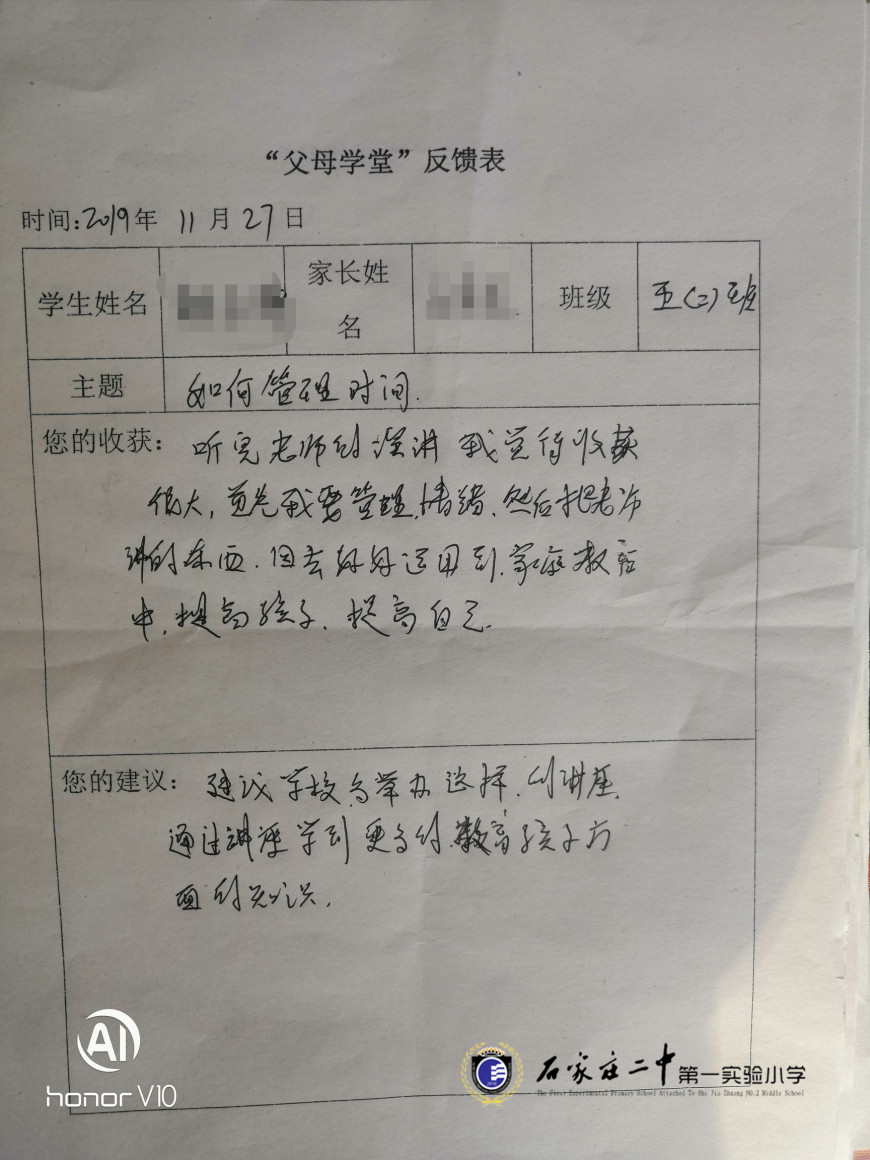 “父母学堂”反馈表
时间:2019年 11月27日
学生姓名 家长姓名 班级 五(二)班
主题 如何管理时间.
您的收获: 听完老师的演讲 我觉得收获
很大,首先我要管理情绪.然后把老师
讲的东西.回去好好运用到.家庭教育
中.提高孩子.提高自己.
您的建议: 建议学校多举办这样.的讲座.
通过讲座学到更多的.教育孩子方
面的知识.
AI
honor V10
石家庄二中第一实验小学
The First Experimental Primary School Attached To Shi Jia Zhuang NO.2 Middle School